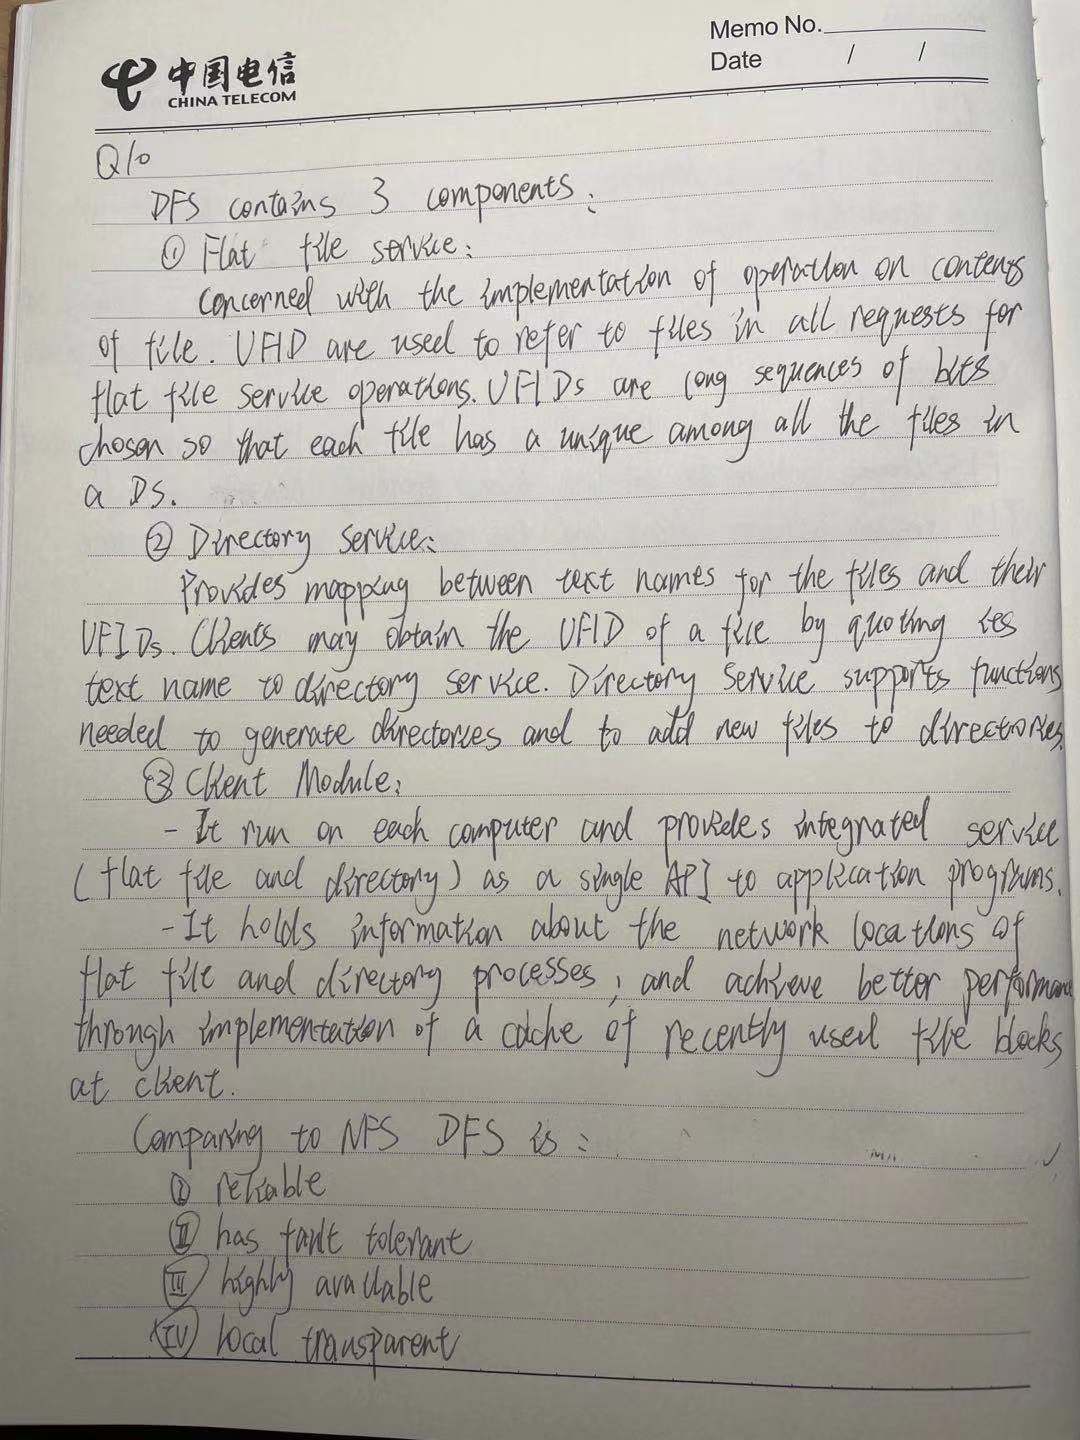 中国电信
CHINA TELECOM
Memo No.
Date / /
Q10
DFS contains 3 components:
① Flat file service:
Concerned with the implementation of operation on contents
of file. UFID are used to refer to files in all requests for
flat file service operations. UFIDs are long sequences of bits
chosen so that each file has a unique among all the files in
a DS.
② Directory Service:
Provides mapping between text names for the files and their
UFIDs. Clients may obtain the UFID of a file by quoting its
text name to directory service. Directory Service supports functions
needed to generate directories and to add new files to directories.
③ Client Module:
- It run on each computer and provides integrated service
(flat file and directory) as a single API to application programs.
- It holds information about the network locations of
flat file and directory processes; and achieve better performance
through implementation of a cache of recently used file blocks
at client.
Comparing to NFS DFS is:
Ⓘ reliable
Ⅱ has fault tolerant
Ⅲ highly available
Ⅳ local transparent